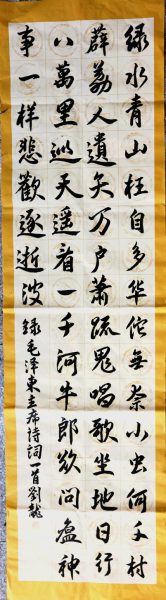 绿水青山枉自多华佗無奈小虫何千村
薜荔人遺矢万户萧疏鬼唱歌坐地日行
八萬里巡天遥看一千河牛郎欲问瘟神
事一样悲歡逐逝波
録毛泽東主席诗词一首劉